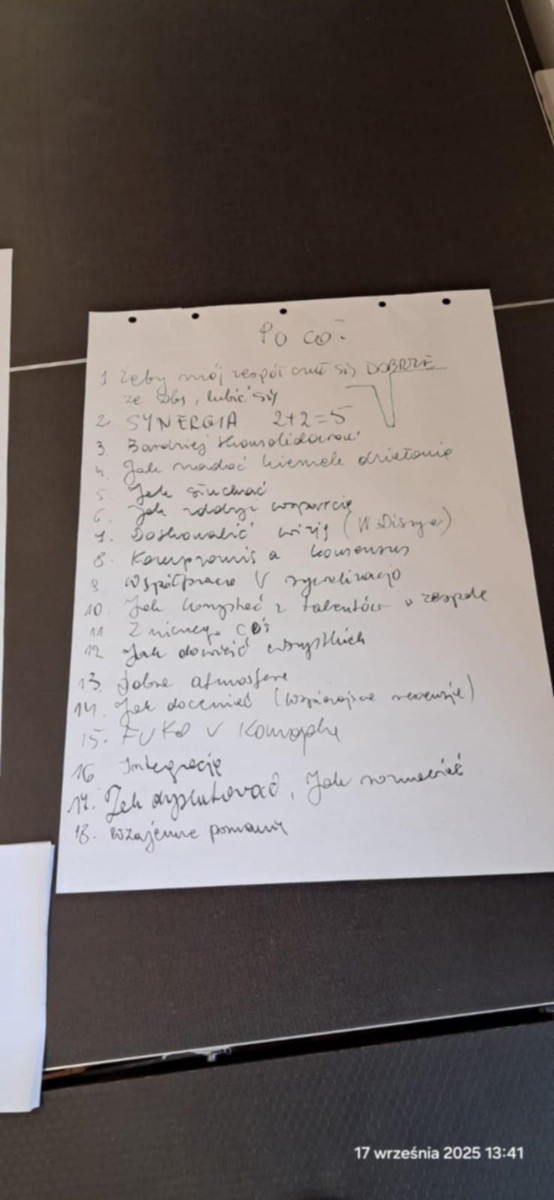 Po co?
1 Żeby mój zespół czuł się DOBRZE
ze sobą, lubić się
2. SYNERGIA 2+2=5
3. Bardziej skonsolidować
4. Jak nadać działanie
5. Jak słuchać
6. Jak zdobyć wsparcie
7. Doskonalić wizję (W. Disneya)
8. Kompromis a konsensus
9 Współpraca V rywalizacja
10. Jak korzystać z talentów w zespole
11 Z niczego coś
12 Jak docenić wszystkich
13. dobra atmosfera
14. Jak doceniać (wspierające recenzje)
15. V
16 Integracja
17. Jak dyskutować, Jak rozmawiać
18. Wzajemne
17 września 2025 13:41